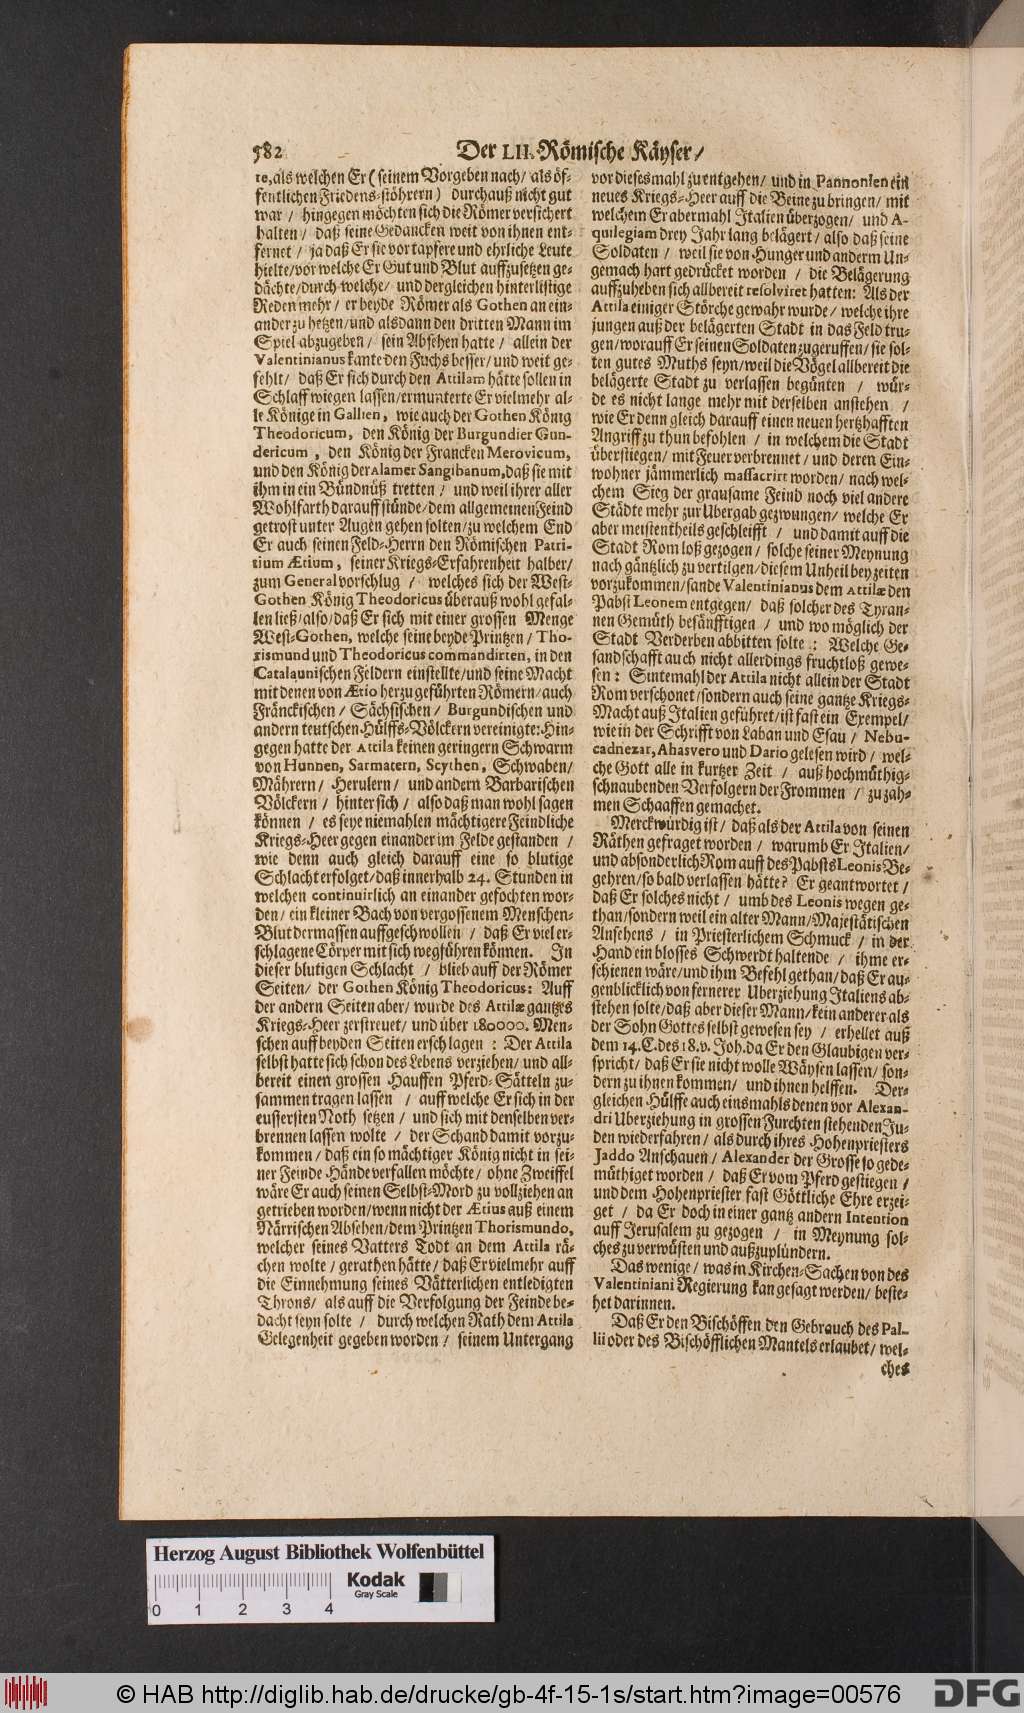 582 Der LII. Römische Käyser/
te, als welchen Er (seinem Vorgeben nach/ als öf-
fentlichen Friedens-stöhrern) durchauß nicht gut
war / hingegen möchten sich die Römer versichert
halten / daß seine Gedancken weit von ihnen ent-
fernet / ja daß Er sie vor tapfere und ehrliche Leute
hielte/ vor welche Er Gut und Blut auffzusetzen ge-
dächte/ durch welche/ und dergleichen hinterlistige
Reden mehr / er beyde Römer als Gothen an ein-
ander zu hetzen/ und alsdann den dritten Mann im
Spiel abzugeben / sein Absehen hatte / allein der
Valentinianus kante den Fuchs besser/ und weit ge-
fehlt/ daß Er sich durch den Attilam hätte sollen in
Schlaff wiegen lassen/ ermunterte Er vielmehr al-
le Könige in Gallien, wie auch der Gothen König
Theodoricum, den König der Burgundier Gun-
dericum, den König der Francken Merovicum,
und den König der Alamer Sangibanum, daß sie mit
ihm in ein Bündnüß tretten / und weil ihrer aller
Wohlfarth darauff stünde/ dem allgemeinen Feind
getrost unter Augen gehen solten/ zu welchem End
Er auch seinen Feld-Herrn den Römischen Patri-
tium Ætium, seiner Kriegs-Erfahrenheit halber/
zum General vorschlug / welches sich der West-
Gothen König Theodoricus überauß wohl gefal-
len ließ/ also/ daß Er sich mit einer grossen Menge
West-Gothen, welche seine beyde Printzen / Tho-
rismund und Theodoricus commandirten, in den
Catalaunischen Feldern einstellte/ und seine Macht
mit denen von Ætio herzu geführten Römern/ auch
Fränckischen / Sächsischen / Burgundischen und
andern teutschen Hülffs-Völckern vereinigte: Hin-
gegen hatte der Attila keinen geringern Schwarm
von Hunnen, Sarmatern, Scythen, Schwaben/
Mährern / Herulern / und andern Barbarischen
Völckern / hinter sich / also daß man wohl sagen
können / es seye niemahlen mächtigere Feindliche
Kriegs-Heer gegen einander im Felde gestanden /
wie denn auch gleich darauff eine so blutige
Schlacht erfolget/ daß innerhalb 24. Stunden in
welchen continuirlich an einander gefochten wor-
den/ ein kleiner Bach von vergossenem Menschen-
Blut dermassen auffgeschwollen / daß Er viel er-
schlagene Cörper mit sich wegführen können. In
dieser blutigen Schlacht / blieb auff der Römer
Seiten/ der Gothen König Theodoricus: Auff
der andern Seiten aber/ wurde des Attilæ gantzes
Kriegs-Heer zerstreuet/ und über 180000. Men-
schen auff beyden Seiten erschlagen: Der Attila
selbst hatte sich schon des Lebens verziehen/ und all-
bereit einen grossen Hauffen Pferd-Sätteln zu-
sammen tragen lassen / auff welche Er sich in der
eussersten Noth setzen / und sich mit denselben ver-
brennen lassen wolte / der Schand damit vorzu-
kommen / daß ein so mächtiger König nicht in sei-
ner Feinde Hände verfallen möchte/ ohne Zweiffel
wäre Er auch seinen Selbst-Mord zu vollziehen an
getrieben worden/ wenn nicht der Ætius auß einem
Närrischen Absehen/ dem Printzen Thorismundo,
welcher seines Vatters Todt an dem Attila rä-
chen wolte / gerathen hätte/ daß Er vielmehr auff
die Einnehmung seines Vätterlichen entledigten
Throns/ als auff die Verfolgung der Feinde be-
dacht seyn solte / durch welchen Rath dem Attila
Gelegenheit gegeben worden / seinem Untergang
vor dieses mahl zu entgehen/ und in Pannonien ein
neues Kriegs-Heer auff die Beine zu bringen/ mit
welchem Er abermahl Italien überzogen/ und A-
quilegiam drey Jahr lang belägert/ also daß seine
Soldaten / weil sie von Hunger und anderm Un-
gemach hart gedrücket worden / die Belägerung
auffzuheben sich allbereit resolviret hatten: Als der
Attila einiger Störche gewahr wurde/ welche ihre
jungen auß der belägerten Stadt in das Feld tru-
gen/ worauff Er seinen Soldaten zugeruffen/ sie sol-
ten gutes Muths seyn/ weil die Vögel allbereit die
belägerte Stadt zu verlassen begünten / wür-
de es nicht lange mehr mit derselben anstehen /
wie Er denn gleich darauff einen neuen hertzhafften
Angriff zu thun befohlen / in welchem die Stadt
überstiegen/ mit Feuer verbrennet/ und deren Ein-
wohner jämmerlich massacrirt worden/ nach wel-
chem Sieg der grausame Feind noch viel andere
Städte mehr zur Ubergab gezwungen/ welche Er
aber meistentheils geschleifft / und damit auff die
Stadt Rom loß gezogen / solche seiner Meynung
nach gäntzlich zu vertilgen/ diesem Unheil bey zeiten
vorzukommen/ sande Valentinianus dem Attilæ den
Pabst Leonem entgegen/ daß solcher des Tyran-
nen Gemüth besänfftigen / und wo möglich der
Stadt Verderben abbitten solte: Welche Ge-
sandschafft auch nicht allerdings fruchtloß gewe-
sen: Sintemahl der Attila nicht allein der Stadt
Rom verschonet/ sondern auch seine gantze Kriegs-
Macht auß Italien geführet/ ist fast ein Exempel/
wie in der Schrifft von Laban und Esau / Nebu-
cadnezar, Ahasvero und Dario gelesen wird / wel-
che Gott alle in kurtzer Zeit / auß hochmüthig-
schnaubenden Verfolgern der Frommen / zu zah-
men Schaaffen gemachet.
Merckwürdig ist/ daß als der Attila von seinen
Räthen gefraget worden / warumb Er Italien/
und absonderlich Rom auff des Pabsts Leonis Be-
gehren/ so bald verlassen hätte? Er geantwortet /
daß Er solches nicht / umb des Leonis wegen ge-
than/ sondern weil ein alter Mann/ Majestätischen
Ansehens / in Priesterlichem Schmuck / in der
Hand ein blosses Schwerdt haltende / ihme er-
schienen wäre/ und ihm Befehl gethan/ daß Er au-
genblicklich von fernerer Uberziehung Italiens ab-
stehen solte/ daß aber dieser Mann/ kein anderer als
der Sohn Gottes selbst gewesen sey / erhellet auß
dem 14. C. des 18. v. Joh. da Er den Glaubigen ver-
spricht/ daß Er sie nicht wolle Wäysen lassen/ son-
dern zu ihnen kommen/ und ihnen helffen. Der-
gleichen Hülffe auch einsmahls denen vor Alexan-
dri Uberziehung in grossen Furchten stehenden Ju-
den wiederfahren/ als durch ihres Hohenpriesters
Jaddo Anschauen/ Alexander der Grosse so gede-
müthiget worden / daß Er vom Pferd gestiegen /
und dem Hohenpriester fast Göttliche Ehre erzei-
get / da Er doch in einer gantz andern Intention
auff Jerusalem zu gezogen / in Meynung sol-
ches zu verwüsten und außzuplündern.
Das wenige/ was in Kirchen-Sachen von des
Valentiniani Regierung kan gesagt werden/ beste-
het darinnen.
Daß Er den Bischöffen den Gebrauch des Pal-
lii oder des Bischöfflichen Mantels erlaubet/ wel-
ches
Herzog August Bibliothek Wolfenbüttel
Kodak
Gray Scale
0 1 2 3 4
© HAB http://diglib.hab.de/drucke/gb-4f-15-1s/start.htm?image=00576
DFG